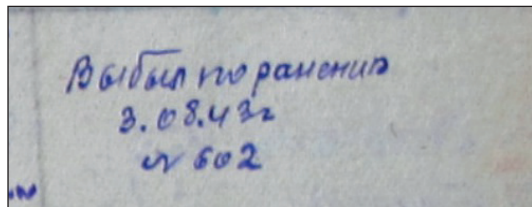 Выбыл по ранению
3.08.43г
№ 602